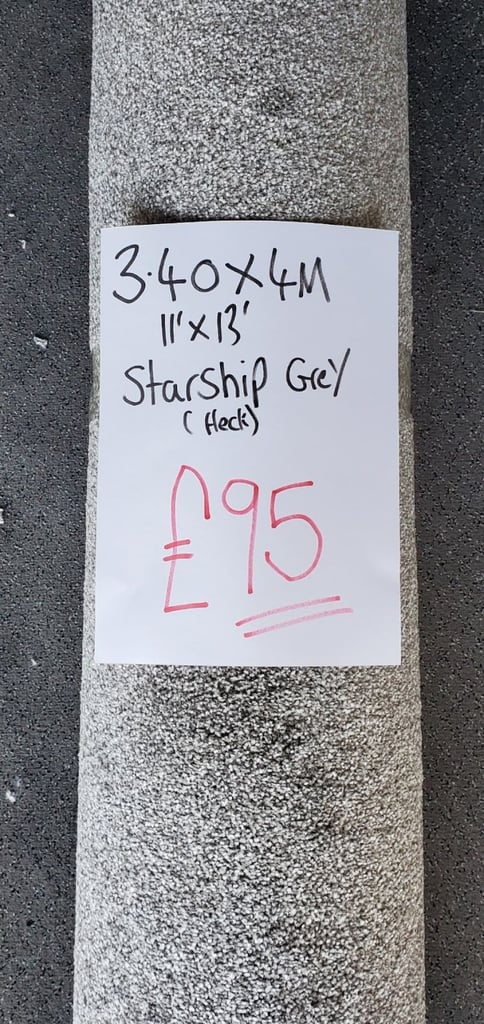 3.40 X 4M
11' X 13'
Starship Grey
(fleck)
£95